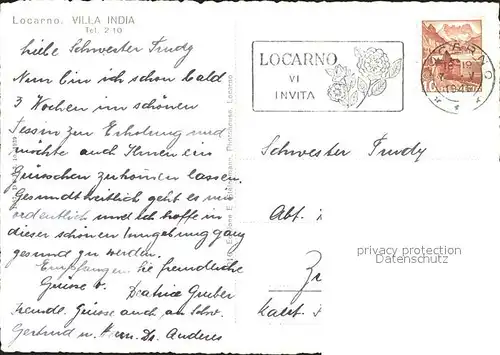 Locarno. VILLA INDIA
Tel. 2 10
liebe Schwester Trudy
Nun bin ich schon bald
3 Wochen im schönen
Tessin zur Erholung und
möchte auch Ihnen ein
Grüsschen zukommen lassen.
Gesundheitlich geht es mir
ordentlich und ich hoffe in
dieser schönen Umgebung ganz
gesund zu werden.
Empfangen Sie freundliche
Grüsse v. Beatrice Gruber
freundl. Grüsse auch an Schw.
Gertrud u. Herrn Dr. Anderes
LOCARNO
VI
INVITA
LOCARNO
1946
10
Schwester Trudy
Abt.
privacy protection
Datenschutz